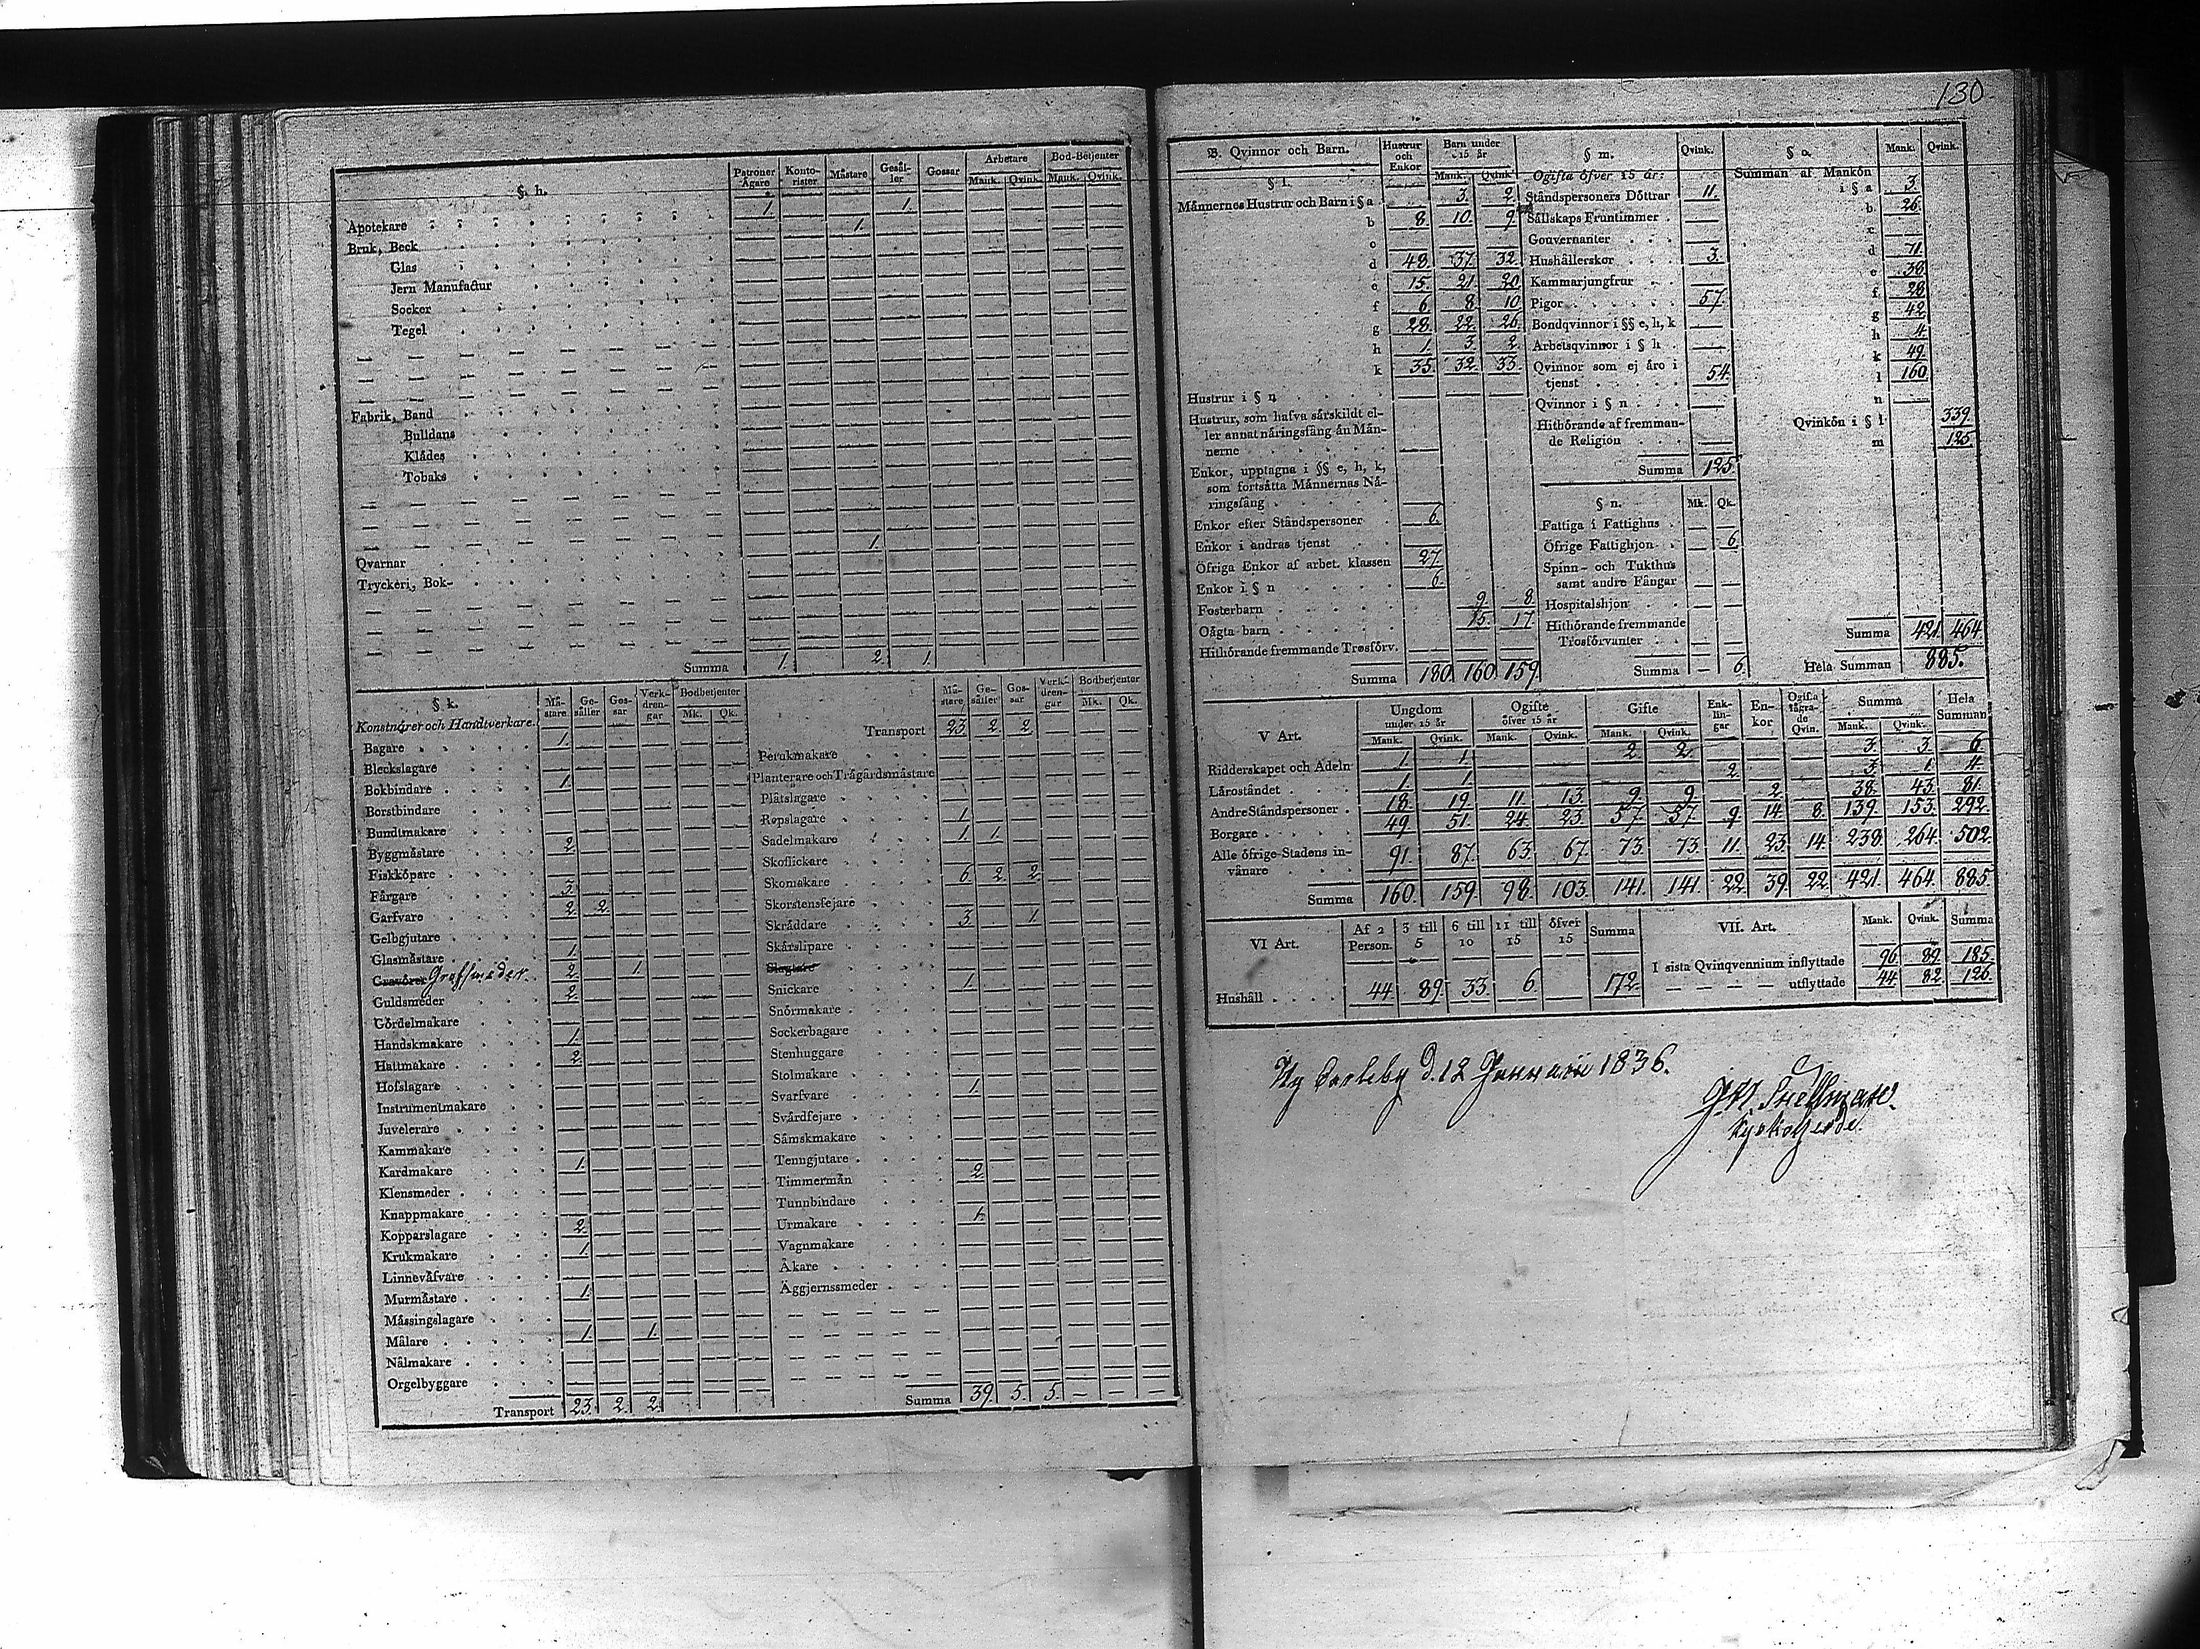 130
§. h. Patroner Ägare Konto-rister Måstare Gesål-ler Gossar Arbetare Mank. Qvink. Bod-Betjenter Mank. Qvink.
Apotekare 1. 1.
Bruk, Beck 1.
Glas
Jern Manufactur
Socker
Tegel
Fabrik, Band
Bulldans
Klådes
Tobaks
Qvarnar 1.
Tryckeri, Bok-
Summa 1. 2. 1.
§ k. Må-stare Ge-såller Gos-sar Verk-dren-gar Bodbetjenter Mk. Qk.
Konstnårer och Handtverkare.
Bagare 1.
Bleckslagare
Bokbindare 1.
Borstbindare
Bundtmakare
Byggmåstare 2.
Fiskkópare
Fårgare 3.
Garfvare 2. 2.
Gelbgjutare
Glasmåstare 1.
Gravôrer Grofsmeder 2. 1.
Guldsmeder 2.
Gôrdelmakare
Handskmakare 1.
Hattmakare 2.
Hofslagare
Instrumentmakare
Juvelerare
Kammakare
Kardmakare 1.
Klensmeder
Knappmakare
Kopparslagare 2.
Krukmakare 1.
Linnevåfvare
Murmåstare 1.
Måssingslagare
Målare 1. 1.
Nålmakare
Orgelbyggare
Transport 23. 2. 2.
Må-stare Ge-såller Gos-sar Verk-dren-gar Bodbetjenter Mk. Qk.
Transport 23. 2. 2.
Perukmakare
Planterare och Trågårdsmåstare
Plåtslagare
Repslagare 1.
Sadelmakare 1. 1.
Skoflickare
Skomakare 6. 2. 2.
Skorstensfejare
Skråddare 3. 1.
Skårslipare
Slagtare
Snickare 1.
Snôrmakare
Sockerbagare
Stenhuggare
Stolmakare
Svarfvare 1.
Svårdfejare
Såmskmakare
Tenngjutare
Timmermån 2.
Tunnbindare
Urmakare 1.
Vagnmakare
Åkare
Äggjernssmeder
Summa 39. 5. 5.
B. Qvinnor och Barn. Hustrur och Enkor Barn under 15 år Mank. Qvink.
§ l.
Månnernes Hustrur och Barn i § a 3. 2.
b 8. 10. 9.
c
d 48. 37. 32.
e 15. 21. 20.
f 6. 8. 10.
g 28. 22. 26.
h 1. 3. 2.
k 35. 32. 33.
Hustrur i § n
Hustrur, som hafva sårskildt el-
ler annat nåringsfång ån Mån-
nerne
Enkor, upptagna i §§ e, h, k,
som fortsåtta Månnernas Nå-
ringsfång
Enkor efter Ståndspersoner 6.
Enkor i andras tjenst
Öfriga Enkor af arbet. klassen 27.
Enkor i § n 6.
Fosterbarn 9. 8.
Oågta barn 15. 17.
Hithórande fremmande Trosfórv.
Summa 180. 160. 159.
§ m. Qvink.
Ogifta ôfver 15 år:
Ståndspersoners Dôttrar 11.
Sållskaps Fruntimmer
Gouvernanter
Hushållerskor 3.
Kammarjungfrur
Pigor 57.
Bondqvinnor i §§ e, h, k
Arbetsqvinnor i § h
Qvinnor som ej åro i
tjenst 54.
Qvinnor i § n
Hithôrande af fremman-
de Religion
Summa 125.
§ n. Mk. Qk.
Fattiga i Fattighus
Öfrige Fattighjon 6.
Spinn- och Tukthus
samt andre Fångar
Hospitalshjon
Hithôrande fremmande
Trosfôrvanter
Summa — 6.
§ o. Mank. Qvink.
Summan af Mankôn
i § a 3.
b 26.
c
d 71.
e 38.
f 28.
g 42.
h 4.
k 49.
l 160.
n
Qvinkôn i § l 339.
m 125.
Summa 421. 464.
Hela Summan 885.
V Art. Ungdom under 15 år Mank. Qvink. Ogifte ôfver 15 år Mank. Qvink. Gifte Mank. Qvink. Enk-lin-gar En-kor Ogifta lågra-de Qvin. Summa Mank. Qvink. Hela Summan
Ridderskapet och Adeln 1. 1. 2. 2. 3. 3. 6.
Låroståndet 1. 1. 2. 3. 1. 4.
Andre Ståndspersoner 18. 19. 11. 13. 9. 9. 2. 38. 43. 81.
Borgare 49. 51. 24. 23. 57. 57. 9. 14. 8. 139. 153. 292.
Alle ôfrige Stadens in-
vånare 91. 87. 63. 67. 73. 73. 11. 23. 14. 238. 264. 502.
Summa 160. 159. 98. 103. 141. 141. 22. 39. 22. 421. 464. 885.
VI Art. Af 2 Person. 3 till 5 6 till 10 11 till 15 ôfver 15 Summa
Hushåll 44. 89. 33. 6. — 172.
VII. Art. Mank. Qvink. Summa
I sista Qvinqvennium inflyttade 96. 89. 185.
— — — — utflyttade 44. 82. 126.
Ny Carleby d. 12 Januarii 1836.
Snellman.
Kyrkoherde.